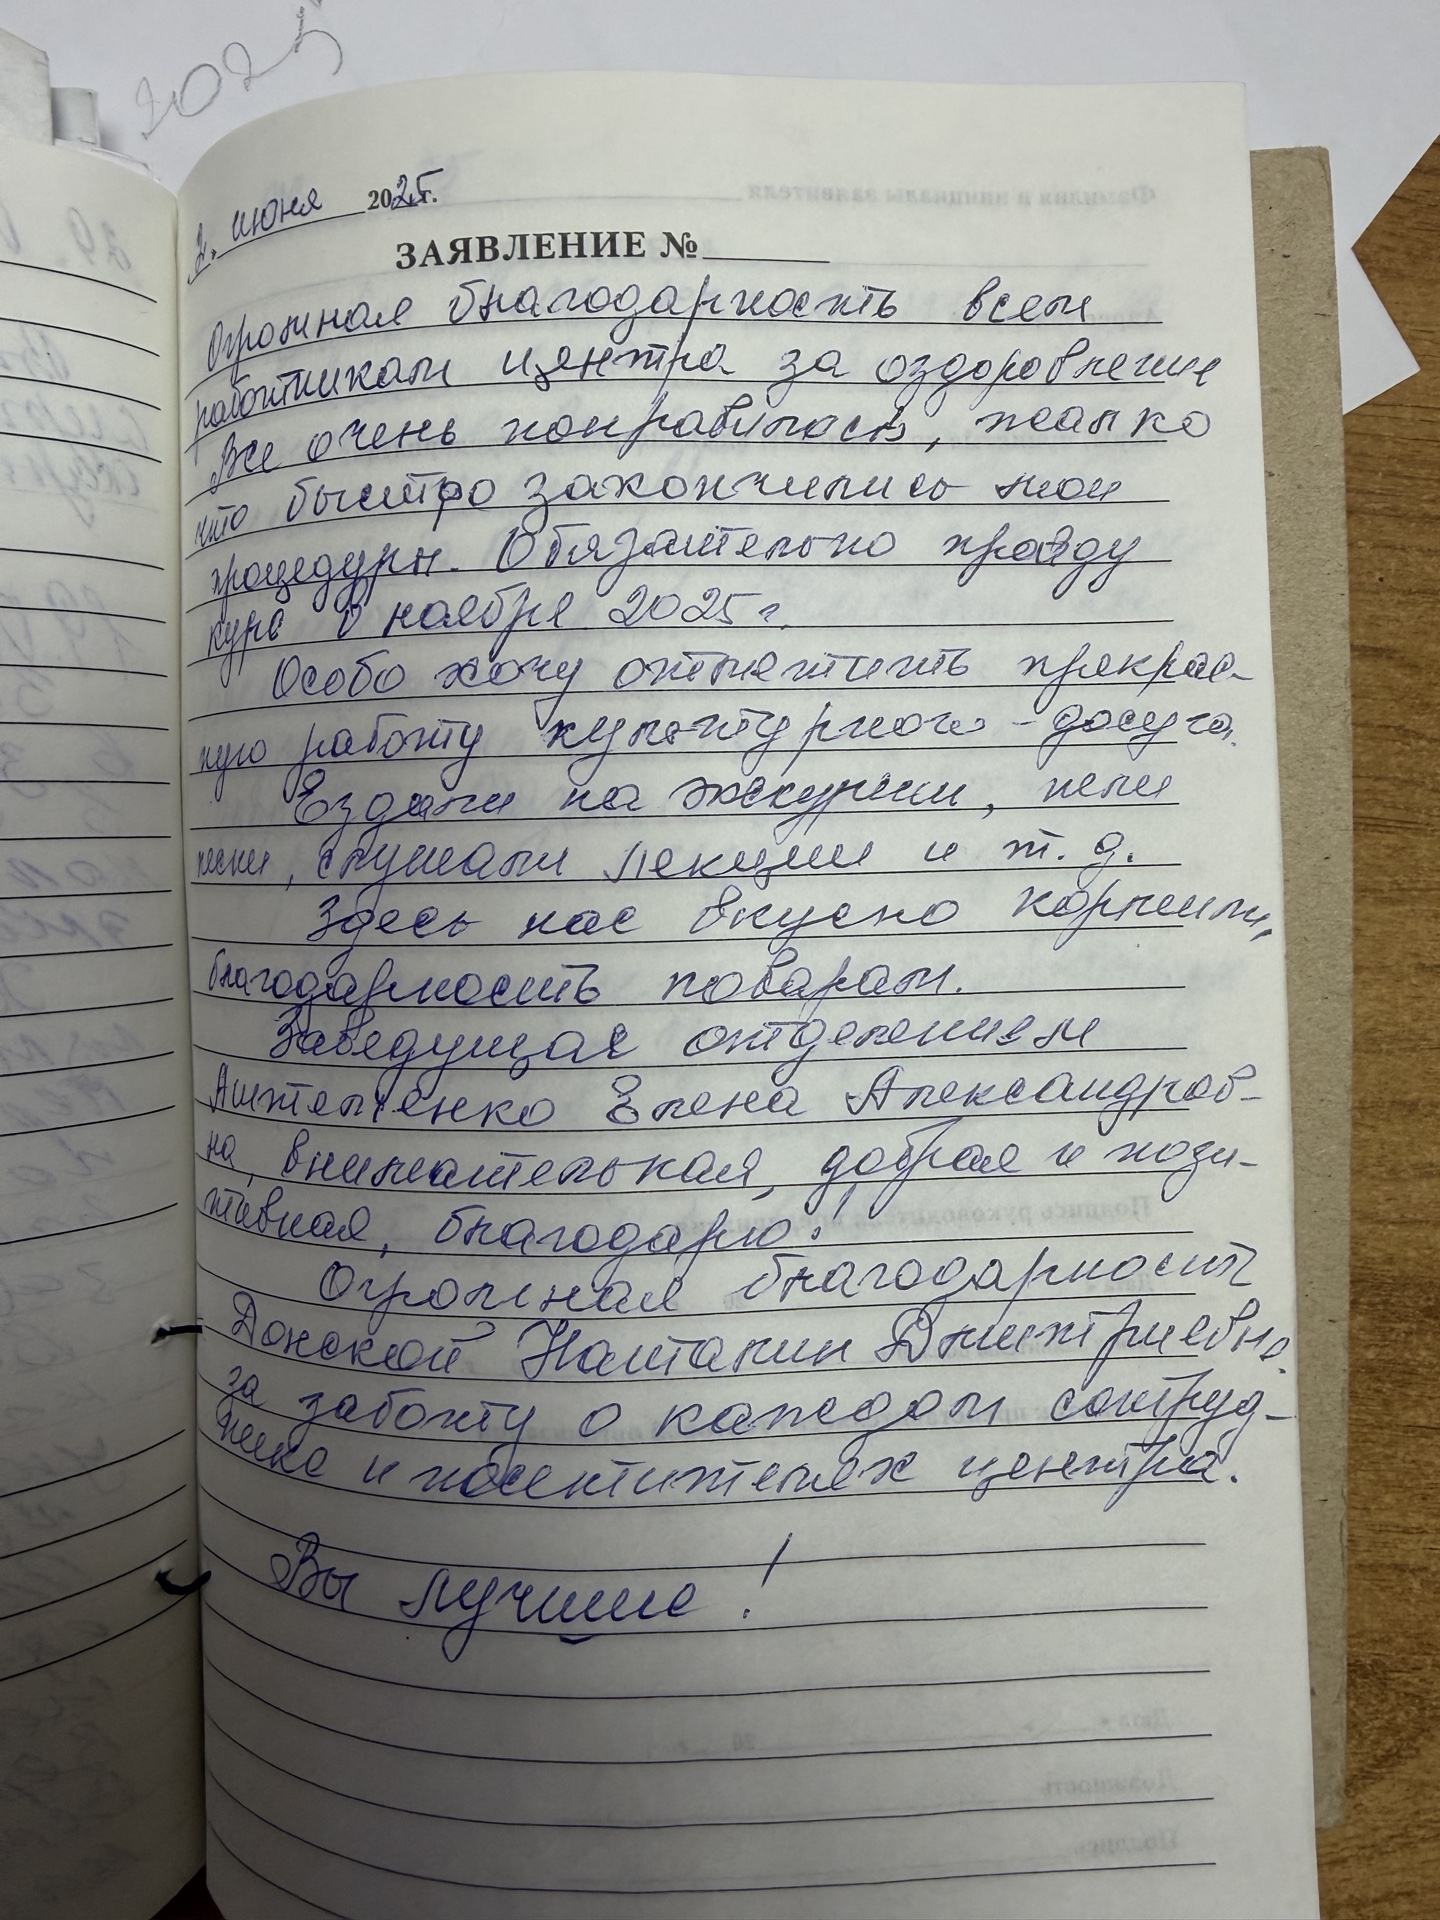 2025
2. июня 2025г.
ЗАЯВЛЕНИЕ №
Огромная благодарность всем
работникам центра за оздоровление
Все очень понравилось, жалко
что быстро закончились мои
процедуры. Обязательно пройду
курс в ноябре 2025г.
Особо хочу отметить прекрас-
ную работу культурного-досуга.
Ездили на экскурсии, пели
песни, слушали лекции и т.д.
Здесь нас вкусно кормили,
благодарность поварам.
Заведущая отделением
Елена Александров-
на, внимательная, добрая и пози-
тивная, благодарю!
Огромная благодарность
Донской Наталии Дмитриевне
за заботу о каждом сотруд-
нике и посетителях центра.
Вы лучшие!